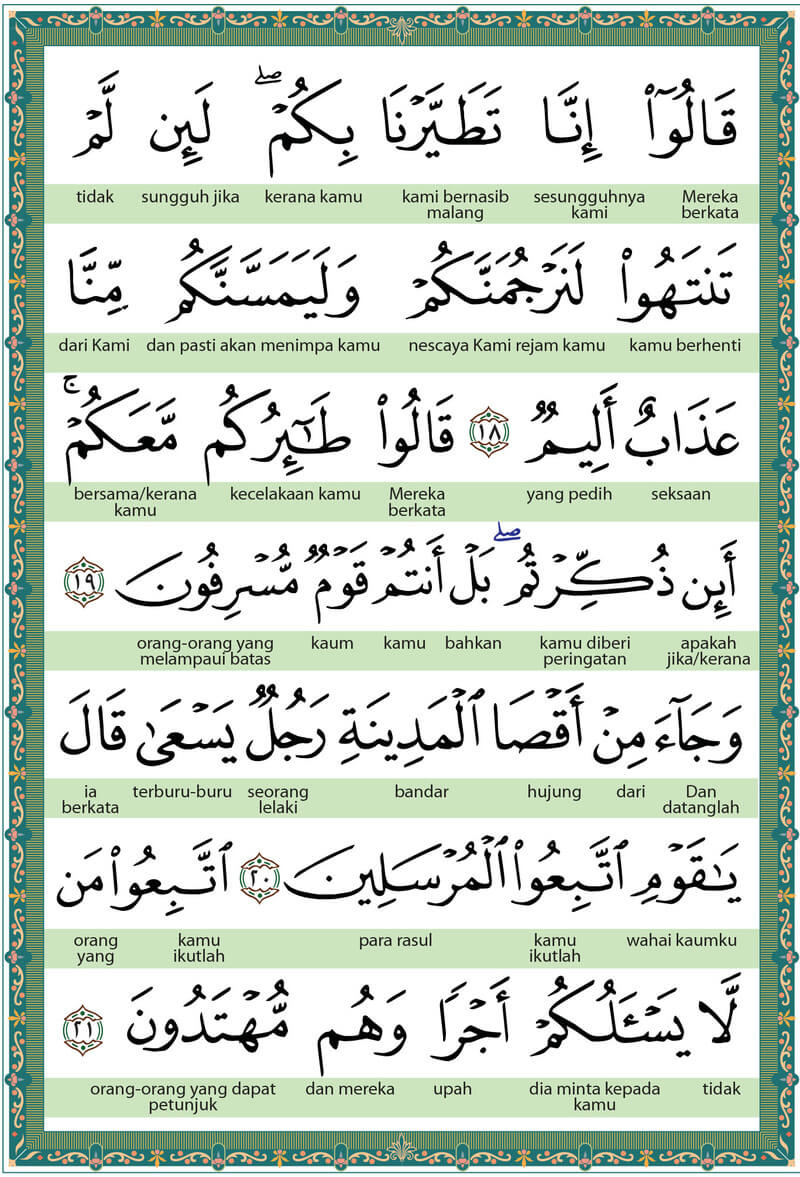 قَالُوٓا۟ إِنَّا تَطَيَّرْنَا بِكُمْ ۖ لَئِن لَّمْ
tidak sungguh jika kerana kamu kami bernasib malang sesungguhnya kami Mereka berkata
تَنتَهُوا۟ لَنَرْجُمَنَّكُمْ وَلَيَمَسَّنَّكُم مِّنَّا
dari Kami dan pasti akan menimpa kamu nescaya Kami rejam kamu kamu berhenti
عَذَابٌ أَلِيمٌ ١٨ قَالُوا۟ طَٰٓئِرُكُم مَّعَكُمْ ۚ
bersama/kerana kamu kecelakaan kamu Mereka berkata yang pedih seksaan
أَئِن ذُكِّرْتُم ۖ بَلْ أَنتُمْ قَوْمٌ مُّسْرِفُونَ ١٩
orang-orang yang melampaui batas kaum kamu bahkan kamu diberi peringatan apakah jika/kerana
وَجَآءَ مِنْ أَقْصَا ٱلْمَدِينَةِ رَجُلٌ يَسْعَىٰ قَالَ
ia berkata terburu-buru seorang lelaki bandar hujung dari Dan datanglah
يَٰقَوْمِ ٱتَّبِعُوا۟ ٱلْمُرْسَلِينَ ٢٠ ٱتَّبِعُوا۟ مَن
orang yang kamu ikutlah para rasul kamu ikutlah wahai kaumku
لَّا يَسْـَٔلُكُمْ أَجْرًا وَهُم مُّهْتَدُونَ ٢١
orang-orang yang dapat petunjuk dan mereka upah dia minta kepada kamu tidak